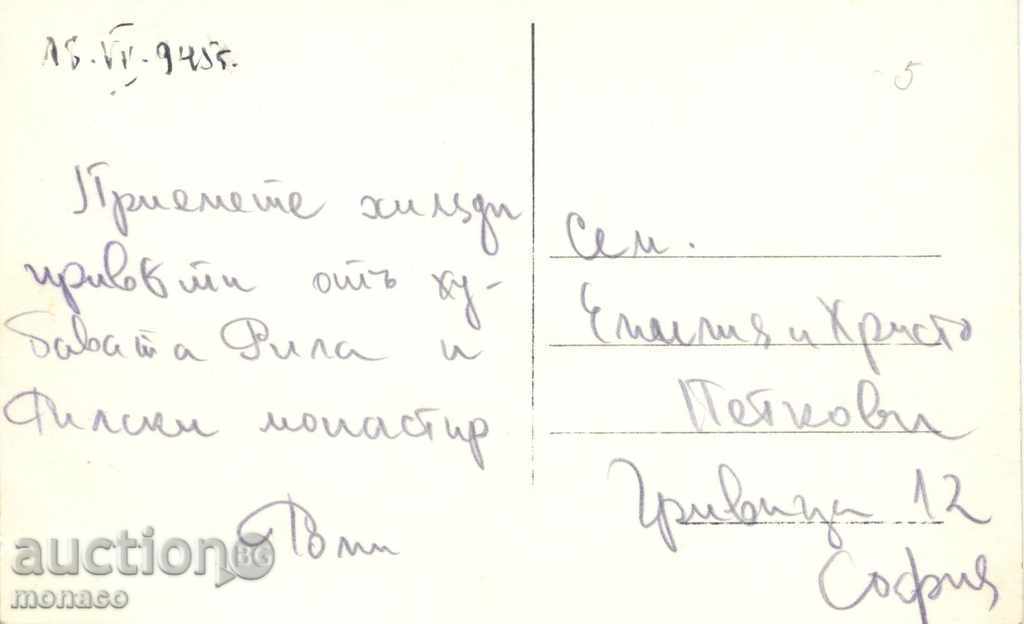 15.VI.945г.
5
Приемете хиляди
приветi отъ ху-
бавата Рила и
Рилски монастир
Роми
Сем.
Емилия и Христо
Петкови
Гривица 12
София
auction BG
monaco